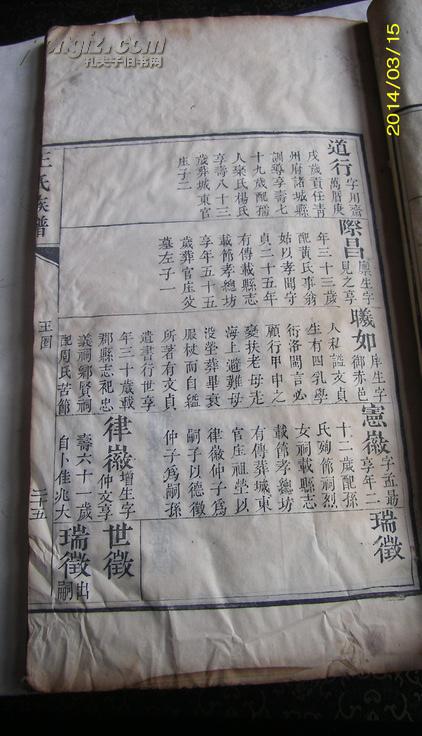 2014/03/15
kongfz.com
孔夫子旧书网
道行
字用齋
萬曆庚
戌歲貢任青
州府諸城縣
訓導享壽七
十九歲配孺
人梁氏楊氏
享壽八十三
歲葬城東官
庄子二
際昌
廩生字
見之享
年三十三歲
配黃氏事翁
姑以孝聞守
貞二十五年
有傳載縣志
載節孝總坊
享年五十五
歲葬官庄父
墓左子一
曦如
庠生字
御赤邑
人私諡文貞
生有四乳學
術洛閩言必
顧行甲申之
變扶老母走
海上避難母
沒塋葬畢衰
服杖而自縊
所著有文貞
遺書行世享
年三十歲載
郡縣志祀忠
義祠鄉賢祠
配周氏苦節
憲徽
字孟勛
享年二
十二歲配孫
氏殉節祠烈
女祠載縣志
載節孝總坊
有傳葬城東
官庄祖塋以
律徽仲子為
嗣子以德徵
仲子為嗣孫
律徽
增生字
仲文享
壽六十一歲
自卜佳兆大
瑞徵
世徵
瑞徵
出嗣
王氏族譜
二十五